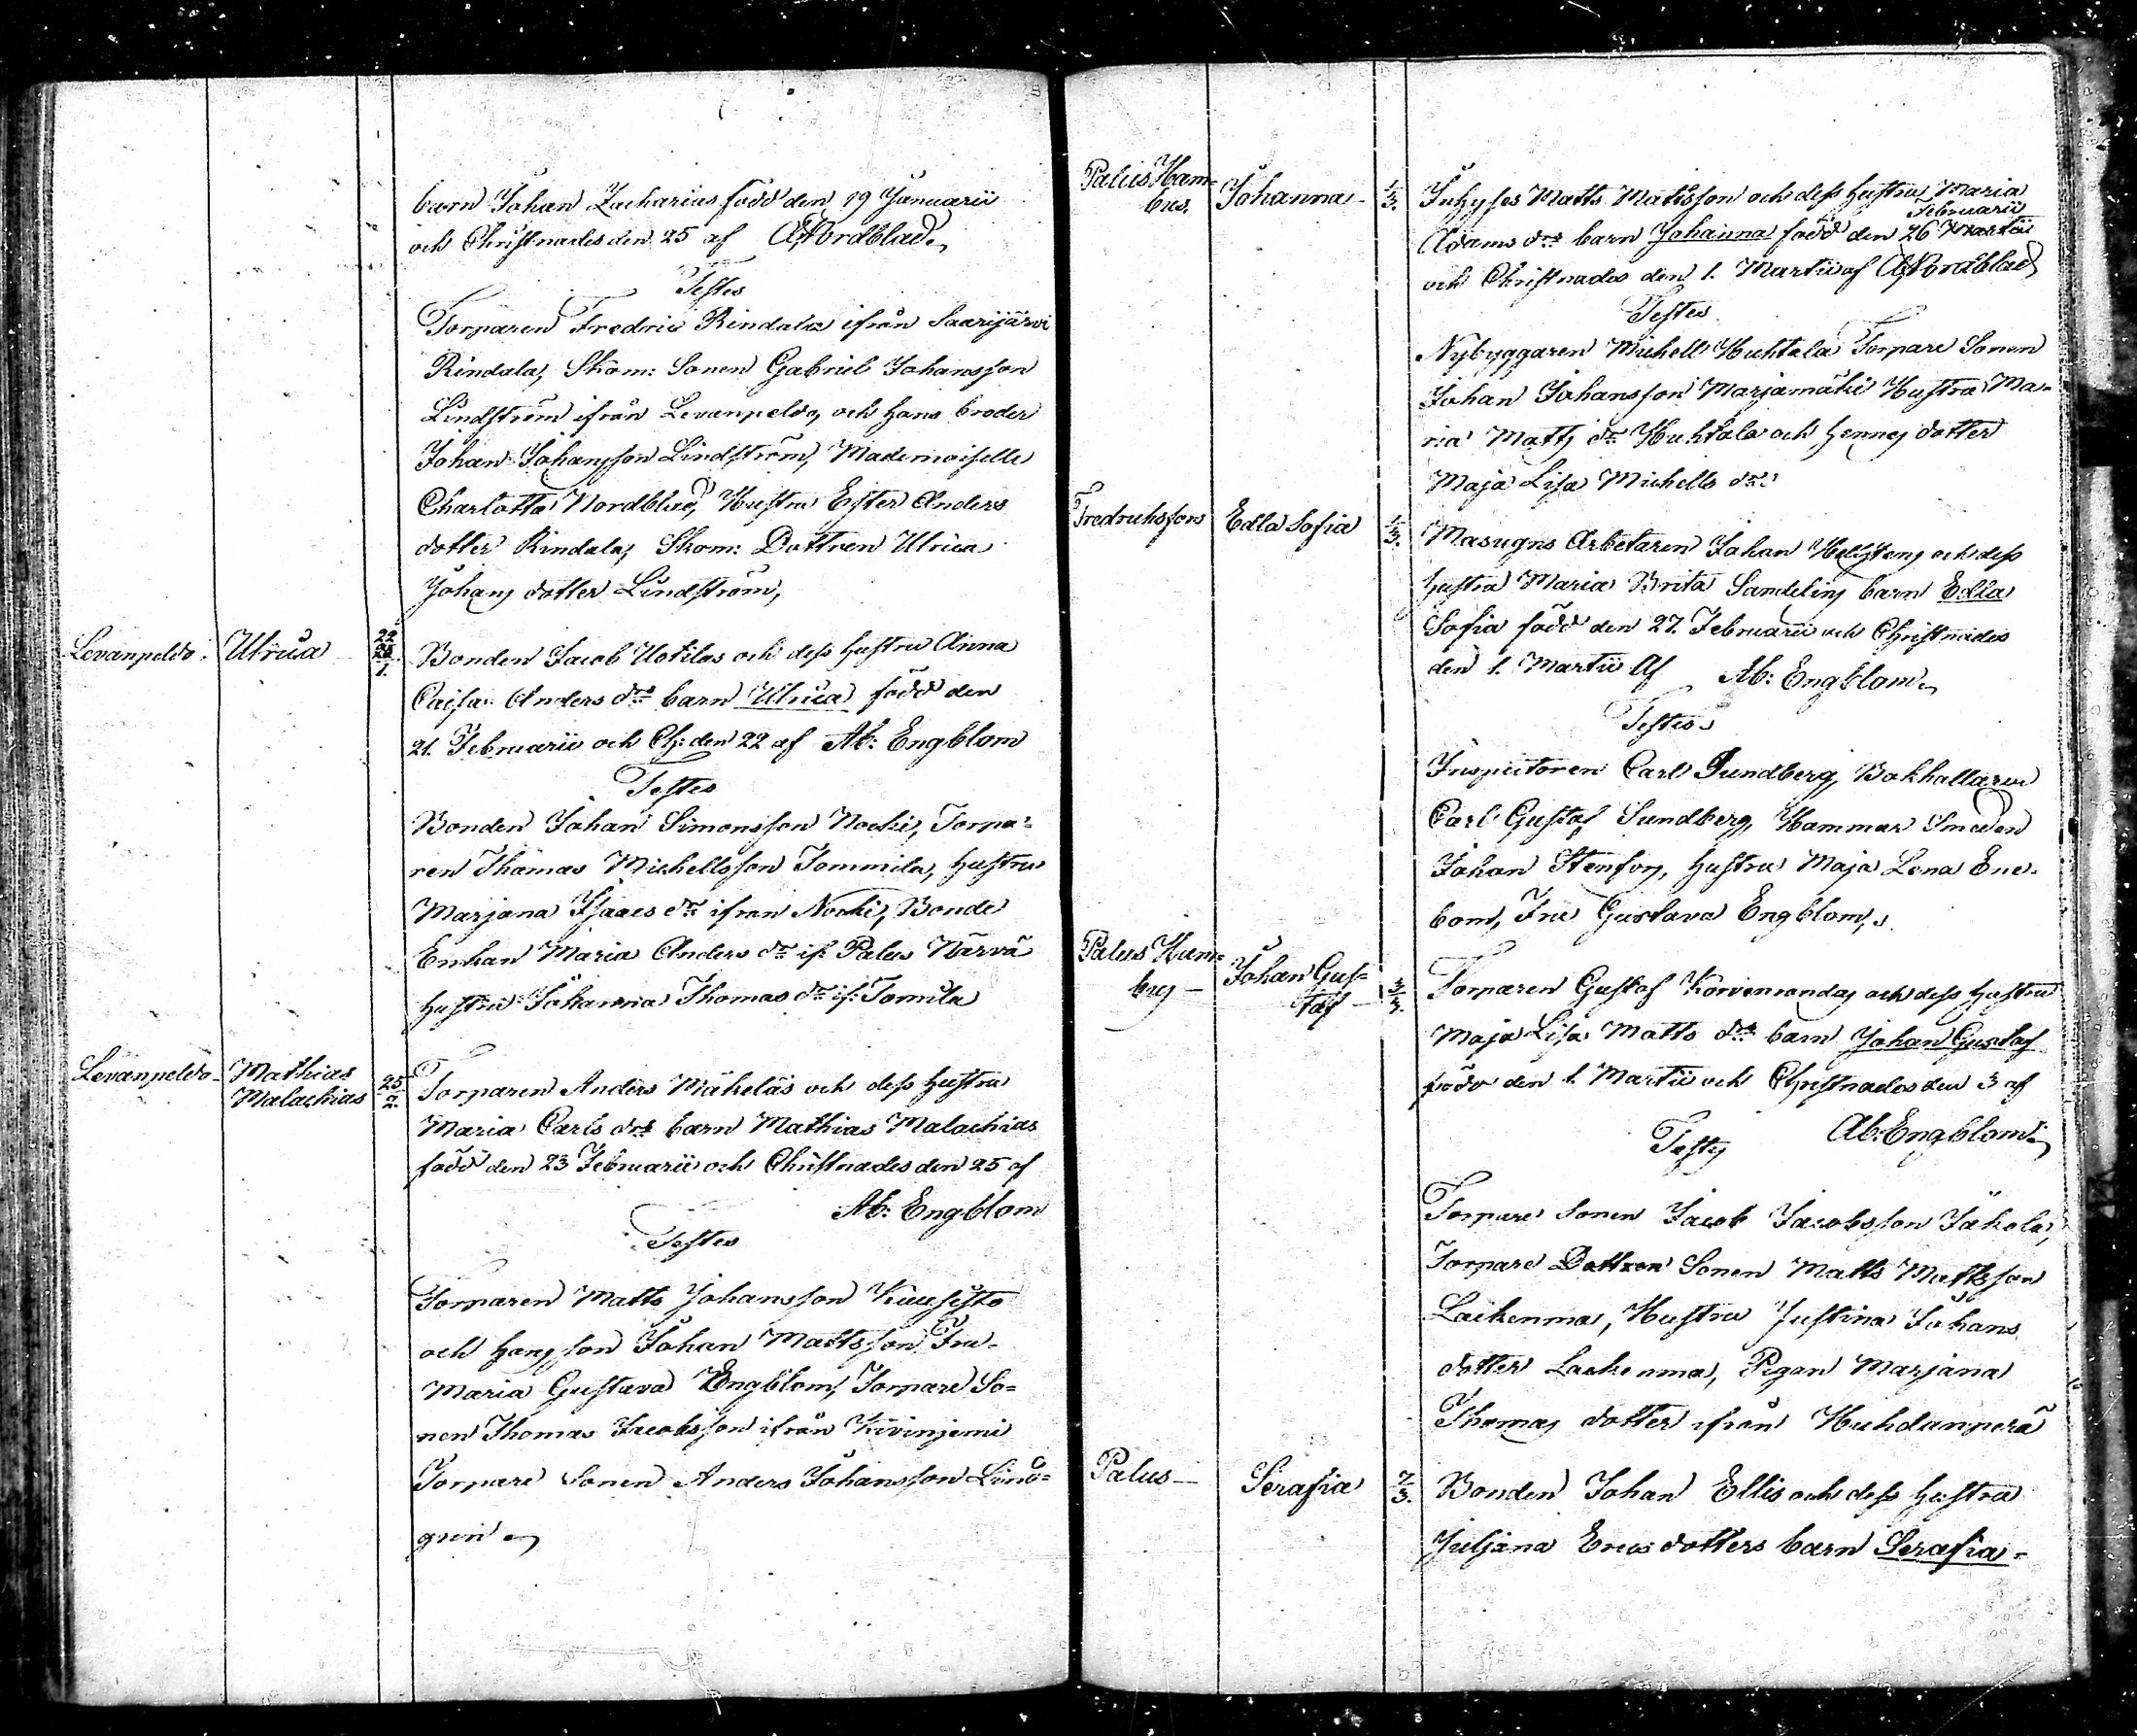 barn Johan Zacharias född den 19 Januarii
och Christnades den 25 af A Nordblad
Testes
Torparen Fredric Rindala ifrån Saarijärvi
Rindala, Skom: Sonen Gabriel Johansson
Lindström ifrån Levanpeldo, och hans broder
Johan Johansson Lindström, Mademoiselle
Charlotta Nordblad, Hustru Ester Anders
dotter Rindala, Skom: Dottren Ulrica
Johans dotter Lindström,
Levanpeldo. Ulrica 22 1. Bonden Jacob Uotilas och dess hustru Anna
Caisa Anders drs barn Ulrica född den
21. Februarii och Ch: den 22 af Ab: Engblom
Testes
Bonden Johan Simonsson Nocki, Torpa=
ren Thomas Michellsson Tommila, hustru
Marjana Isaacs dr ifrån Nocki, Bonde
Enkan Maria Anders dr if: Palus Närvä
hustru Johanna Thomas dr if: Tomila
Levanpeldo Mathias Malachias 25/2. Torparen Anders Mäkeläs och dess hustru
Maria Carls drs barn Mathias Malachias
född den 23 Februarii och Christnades den 25 af
Ab: Engblom
Testes
Torparen Matts Johansson Kuusisto
och hans son Johan Mattsson Fru
Maria Gustava Engblom, Torpare So=
nen Thomas Jacobsson ifrån Kivinjemi
Torpare Sonen Anders Johansson Lind=
gren
Palus Ham=
bus. Johanna 1/3. Inhyses Matts Matsson och dess hustru Maria
Februarii
Adams drs barn Johanna född den 26 Martii
och Christnades den 1. Martii af A Nordblad
Testes
Nybyggaren Michell Huhtala Torpare Sonen
Johan Johansson Marjamäki Hustru Ma=
ria Matts dr Huhtala och hennes dotter
Maja Lisa Michells dr.
Fredrichsfors Edla Sofia 1/3. Masugns Arbetaren Johan Hellstens och dess
hustru Maria Brita Sandelins barn Edla
Sofia född den 27. Februarii och Christnades
den 1. Martii Af Ab: Engblom
Testes
Inspectoren Carl Sundberg, Bokhallaren
Carl Gustaf Sundberg, Hammar Smeden
Johan Stenfors, hustru Maja Lena Ene=
bom, Fru Gustava Engblom,
Palus Ham=
bus Johan Gus=
taf 3/3. Torparen Gustaf Korvenrandas och dess hustru
Maja Lisa Matts drs barn Johan Gustaf
född den 1. Martii och Christnades den 3 af
Testes Ab: Engblom
Torpare Sonen Jacob Jacobsson Jäkola,
Torpare Dottren Sonen Matts Mattsson
Lackenma, Hustru Justina Johans
dotter Lackenma, Pigan Marjana
Thomas dotter ifrån Huhdanperä
Palus Serafia 7/3. Bonden Johan Ellis och dess hustru
Juljana Erics dotters barn Serafia